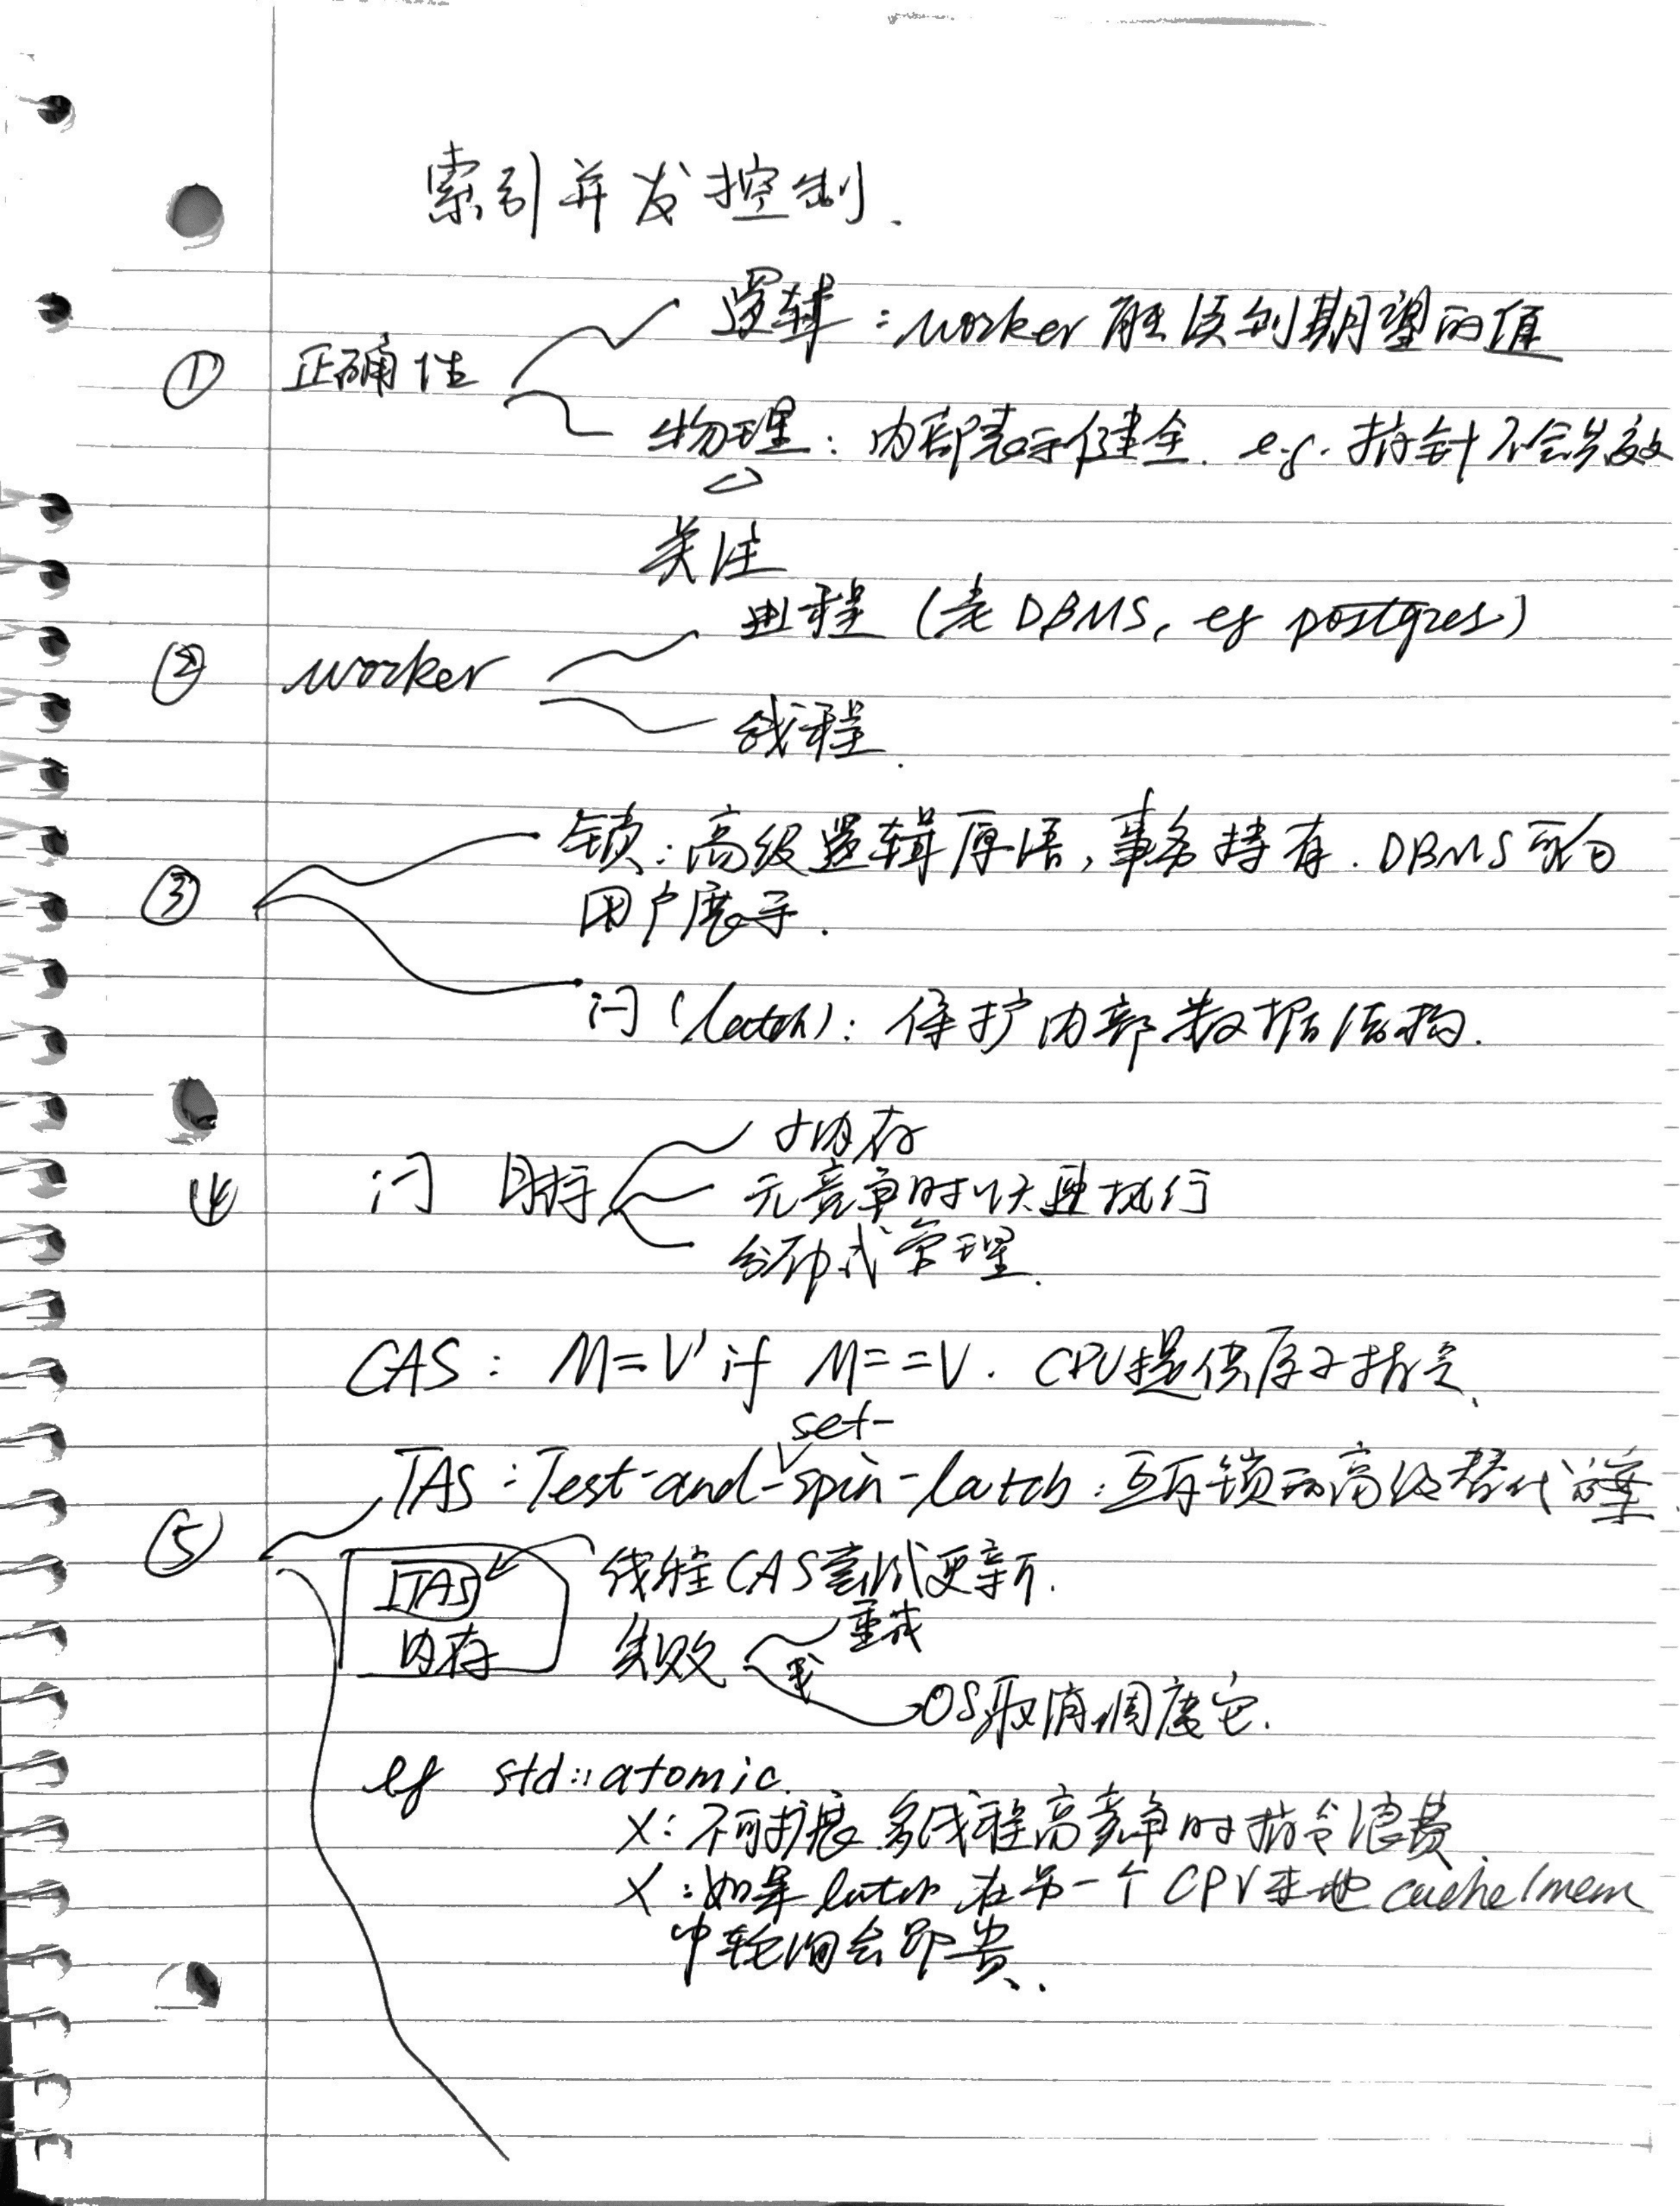 索引并发控制.
逻辑:worker 能读到期望的值
① 正确性
物理:内部表示健全. e.g. 指针不会失效
关注
进程(老DBMS, eg postgres)
② worker
线程.
锁:高级逻辑原语,事务持有. DBMS可向
③
用户展示.
闩(latch):保护内部数据结构.
小内存
④ 闩 目标 无竞争时快速执行
分布式管理.
CAS: M=V' if M==V. CPU提供原子指令.
set-
TAS:Test-and-spin-latch:互斥锁的高级替代方案.
⑤
TAS 线程CAS尝试更新.
重试
内存 失败
或
OS取消调度它.
eg std::atomic.
X:不可扩展 多线程高竞争时指令浪费.
X:如果latch 在另一个CPU本地 cache/mem
中轮询会昂贵.